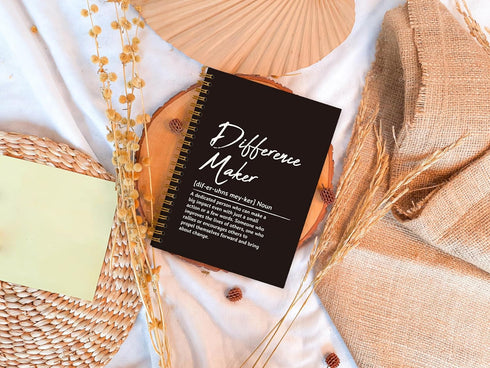 Difference
Maker
[dif-er-uhns mey-ker] Noun
A dedicated person who can make a
big impact even with just a small
action or a few words. Someone who
improves the lives of others, one who
rallies or encourages others to
propel themselves forward and bring
about change.